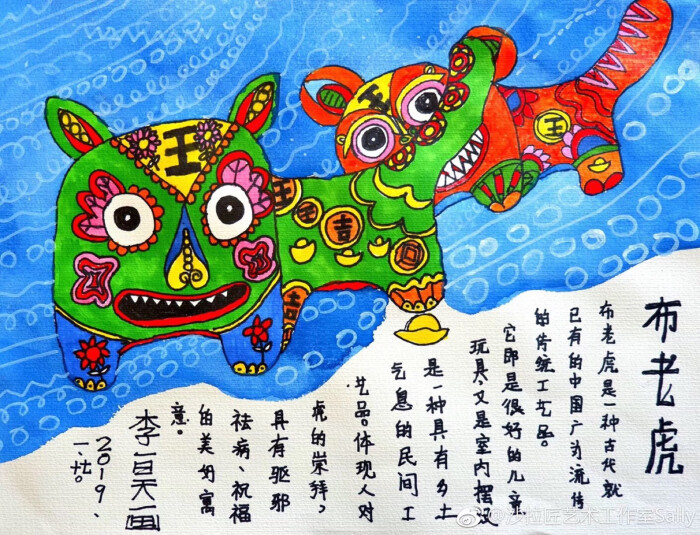 王
王
王
吉
吉
王
布老虎
布老虎是一种古代就
已有的中国广为流传
的传统工艺品。
它即是很好的儿童
玩具、又是室内摆设
是一种具有乡土
气息的民间工
艺品。体现人对
虎的崇拜,
具有驱邪
祛病、祝福
的美好寓
意。
2019、
一、廿。
@沙拉匠艺术工作室Sally